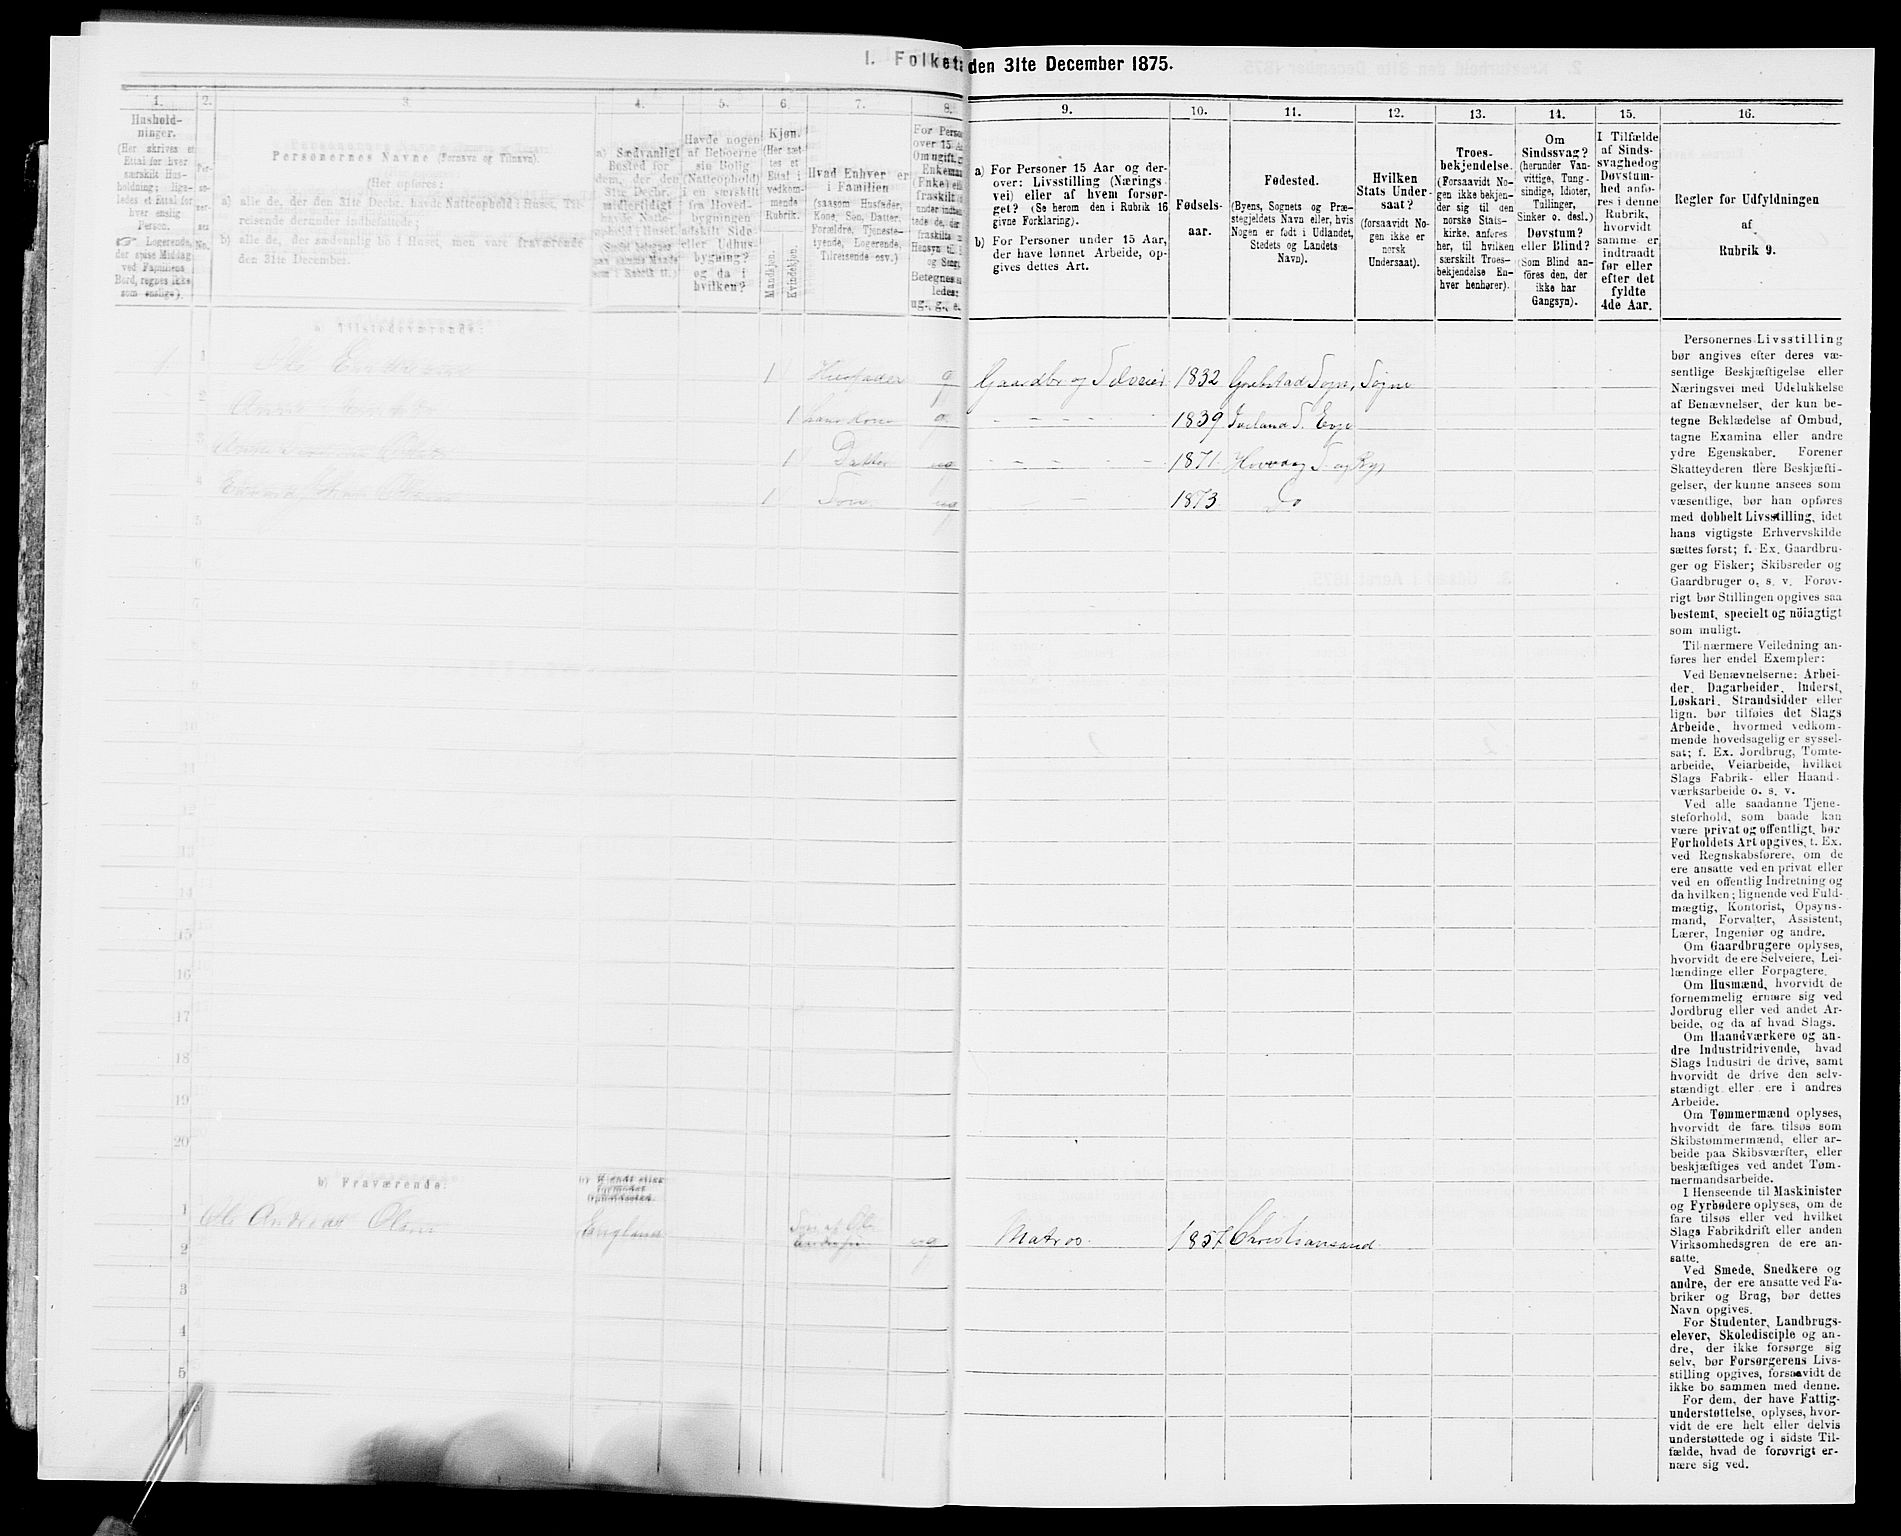 I. Folketæ
den 31te December 1875.
1.
2.
3.
4.
5.
6
7.
8.
9.
10.
11.
12.
13.
14.
15.
16.
Hushold-
ninger.
(Her skrives et
Ettal for hver
særskilt Hus-
holdning; lige-
ledes et Ettal for
hver enslig
Person.
☞ Logerende,
der spise Middag
ved Familiens
Bord, regnes ikke
som enslige).
Per-
so-
ner-
nes
No.
Personernes Navne (Fornavn og Tilnavn).
(Her opføres:
a) alle de, der den 31te Decbr. havde Natteophold i Huset, Til-
reisende derunder indbefattede;
b) alle de, der sædvanlig bo i Huset, men vare fraværende
den 31te December.
a) Sædvanligt
Bosted for
dem, der den
31te Decbr.
midlertidigt
havde Natte-
ophold i Huset.
Havde nogen
af Beboerne
sin Bolig
(Natteophold)
i en særskilt
fra Hoved-
bygningen
adskilt Side-
eller Udhus-
bygning?
og da i
hvilken?
Kjøn.
(Her sæt-
tes et
Ettal i
vedkom-
mende
Rubrik.
Mandkjøn.
Kvindekjøn.
Hvad Enhver er
i Familien
(saasom Husfader,
Kone, Søn, Datter,
Forældre, Tjeneste-
tyende, Logerende,
Tilreisende osv.)
For Perso
over 15 Aa
Om ugift, g
Enkeman
(Enke) ell
fraskilt
ug., g., e.
a) For Personer 15 Aar og der-
over: Livsstilling (Nærings
vei) eller af hvem forsør-
get? (Se herom den i Rubrik 16
givne Forklaring).
b) For Personer under 15 Aar,
der have lønnet Arbeide, op-
gives dettes Art.
Fødsels-
aar.
Fødested.
(Byens, Sognets og Præ-
stegjeldets Navn eller, hvis
Nogen er født i Udlandet,
Stedets og Landets
Navn).
Hvilken
Stats Under-
saat?
(forsaavidt No-
gen ikke er
norsk
Undersaat).
Troes-
bekjendelse.
(Forsaavidt No-
gen ikke bekjen-
der sig til den
norske Stats-
kirke, anføres
her, til hvilken
særskilt Troes-
bekjendelse En-
hver henhører).
Om
Sindssvag?
(herunder Van-
vittige, Tung-
sindige, Idioter,
Tullinger,
Sinker o. desl.)
Døvstum?
eller Blind?
(Som Blind an-
føres den, der
ikke har
Gangsyn).
I Tilfælde
af Sinds-
svaghedog
Døvstum-
hed anfø-
res i denne
Rubrik,
hvorvidt
samme er
indtraadt
før eller
efter det
fyldte
4de Aar.
Regler for Udfyldningen
af
Rubrik 9.
a) Tilstedeværende:
1 1 Ole 1 Husfader g Gaardbr og Selveier 1832 Greibstad Sogn, Søgne
2 1 g - - - 1839 Iveland S. Evje
3 1 Datter ug - - - - 1871. S. og
4 1 Søn ug - 1873. Do
5
6
7
8
9
10
11
12
13
14
15
16
17
18
19
20
b) Fraværende:
1 Ole Andreas Olsen England Søn af Ole ug Matros. 1857 Christiansand.
2
3
4
5
Personernes Livsstilling
bør angives efter deres væ-
sentlige Beskjæftigelse eller
Næringsvei med Udelukkelse
af Benævnelser, der kun be-
tegne Beklædelse af Ombud,
tagne Examina eller andre
ydre Egenskaber. Forener
Skatteyderen flere Beskjæfti-
gelser, der kunne ansees som
væsentlige, bør han opføres
med dobbelt Livsstilling, idet
hans vigtigste Erhvervskilde
sættes først; f. Ex. Gaardbru-
ger og Fisker; Skibsreder og
Gaardbruger o. s. v. Forøv-
rigt bør Stillingen opgives saa
bestemt, specielt og nöiagtigt
som muligt.
Til nærmere Veiledning an-
føres her endel Exempler:
Ved Benævnelserne: Arbei-
der, Dagarbeider, Inderst,
Løskarl, Strandsidder eller
lign. bør tilføies det Slags
Arbeide, hvormed vedkom-
mende hovedsagelig er syssel-
sat; f. Ex. Jordbrug, Tomte-
arbeide, Veiarbeide, hvilket
Slags Fabrik- eller Haand-
værksarbeide o. s. v.
Ved alle saadanne Tjene-
steforhold, som baade kan
være privat og offentligt, bør
Forholdets Art opgives, f. Ex.
ved Regnskabsførere, om de
ere ansatte ved en privat eller
ved en offentlig Indretning og
da hvilken; lignende ved Fuld-
mægtig, Kontorist, Opsyns-
mand, Forvalter, Assistent,
Lærer, Ingeniør og andre.
Om Gaardbrugere oplyses,
hvorvidt de ere Selveiere, Lei-
lændinge eller Forpagtere.
Om Husmænd, hvorvidt de
fornemmelig ernære sig ved
Jordbrug eller ved andet Ar-
beide, og da af hvad Slags.
Om Haandværkere og an-
dre Industridrivende, hvad
Slags Industri de drive, samt
hvorvidt de drive den selv-
stændigt eller ere i andres
Arbeide.
Om Tømmermænd oplyses,
hvorvidt de fare tilsøs som
Skibstømmermænd, eller ar-
beide paa Skibsværfter, eller
beskjæftiges ved andet Tøm-
mermandsarbeide.
I Henseende til Maskinister
og Fyrbødere oplyses, om de
fare tilsøs eller ved hvilket
Slags Fabrikdrift eller anden
Virksomhedsgren de ere an-
satte.
Ved Smede, Snedkere og
andre, der ere ansatte ved Fa-
briker og Brug, bør dettes
Navn opgives.
For Studenter, Landbrugs-
elever, Skoledisciple og an-
dre, der ikke forsørge sig
selv, bør Forsørgerens Livs-
stilling opgives, forsaavidt de
ikke bo sammen med denne.
For dem, der have Fattig-
understøttelse, oplyses, hvor-
vidt de ere helt eller delvis
understøttede og i sidste Til-
fælde, hvad de forøvrigt er-
nære sig ved.